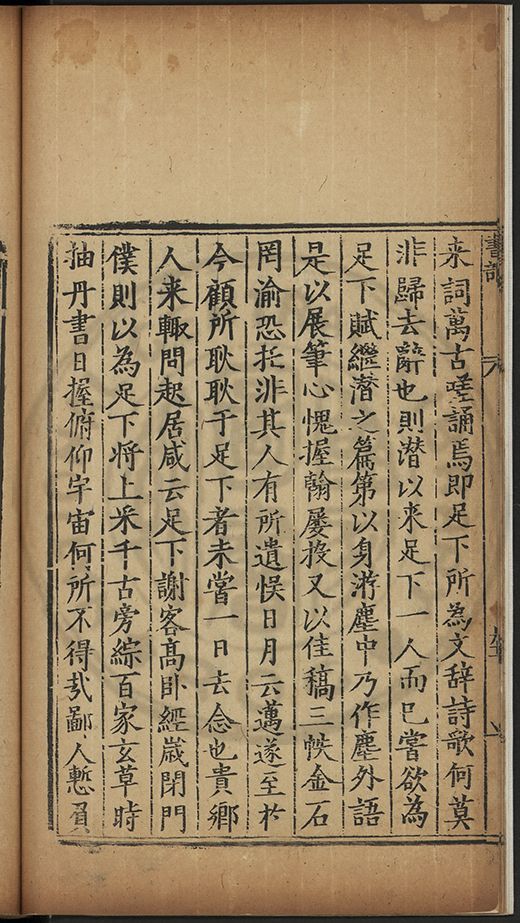 来詞萬古嗟誦焉即足下所為文辞詩歌何莫
非歸去辭也則潛以來足下一人而已嘗欲為
足下賦繼潛之篇第以身游塵中乃作塵外語
是以展筆心愧握翰屢投又以佳稿三帙金石
罔渝恐托非其人有所遺悮日月云邁遂至於
今顧所耿耿于足下者未嘗一日去念也貴鄉
人来輙問起居咸云足下謝客高卧經嵗閉門
僕則以為足下將上采千古旁綜百家玄草時
抽丹書日握俯仰宇宙何所不得㢤鄙人慙負